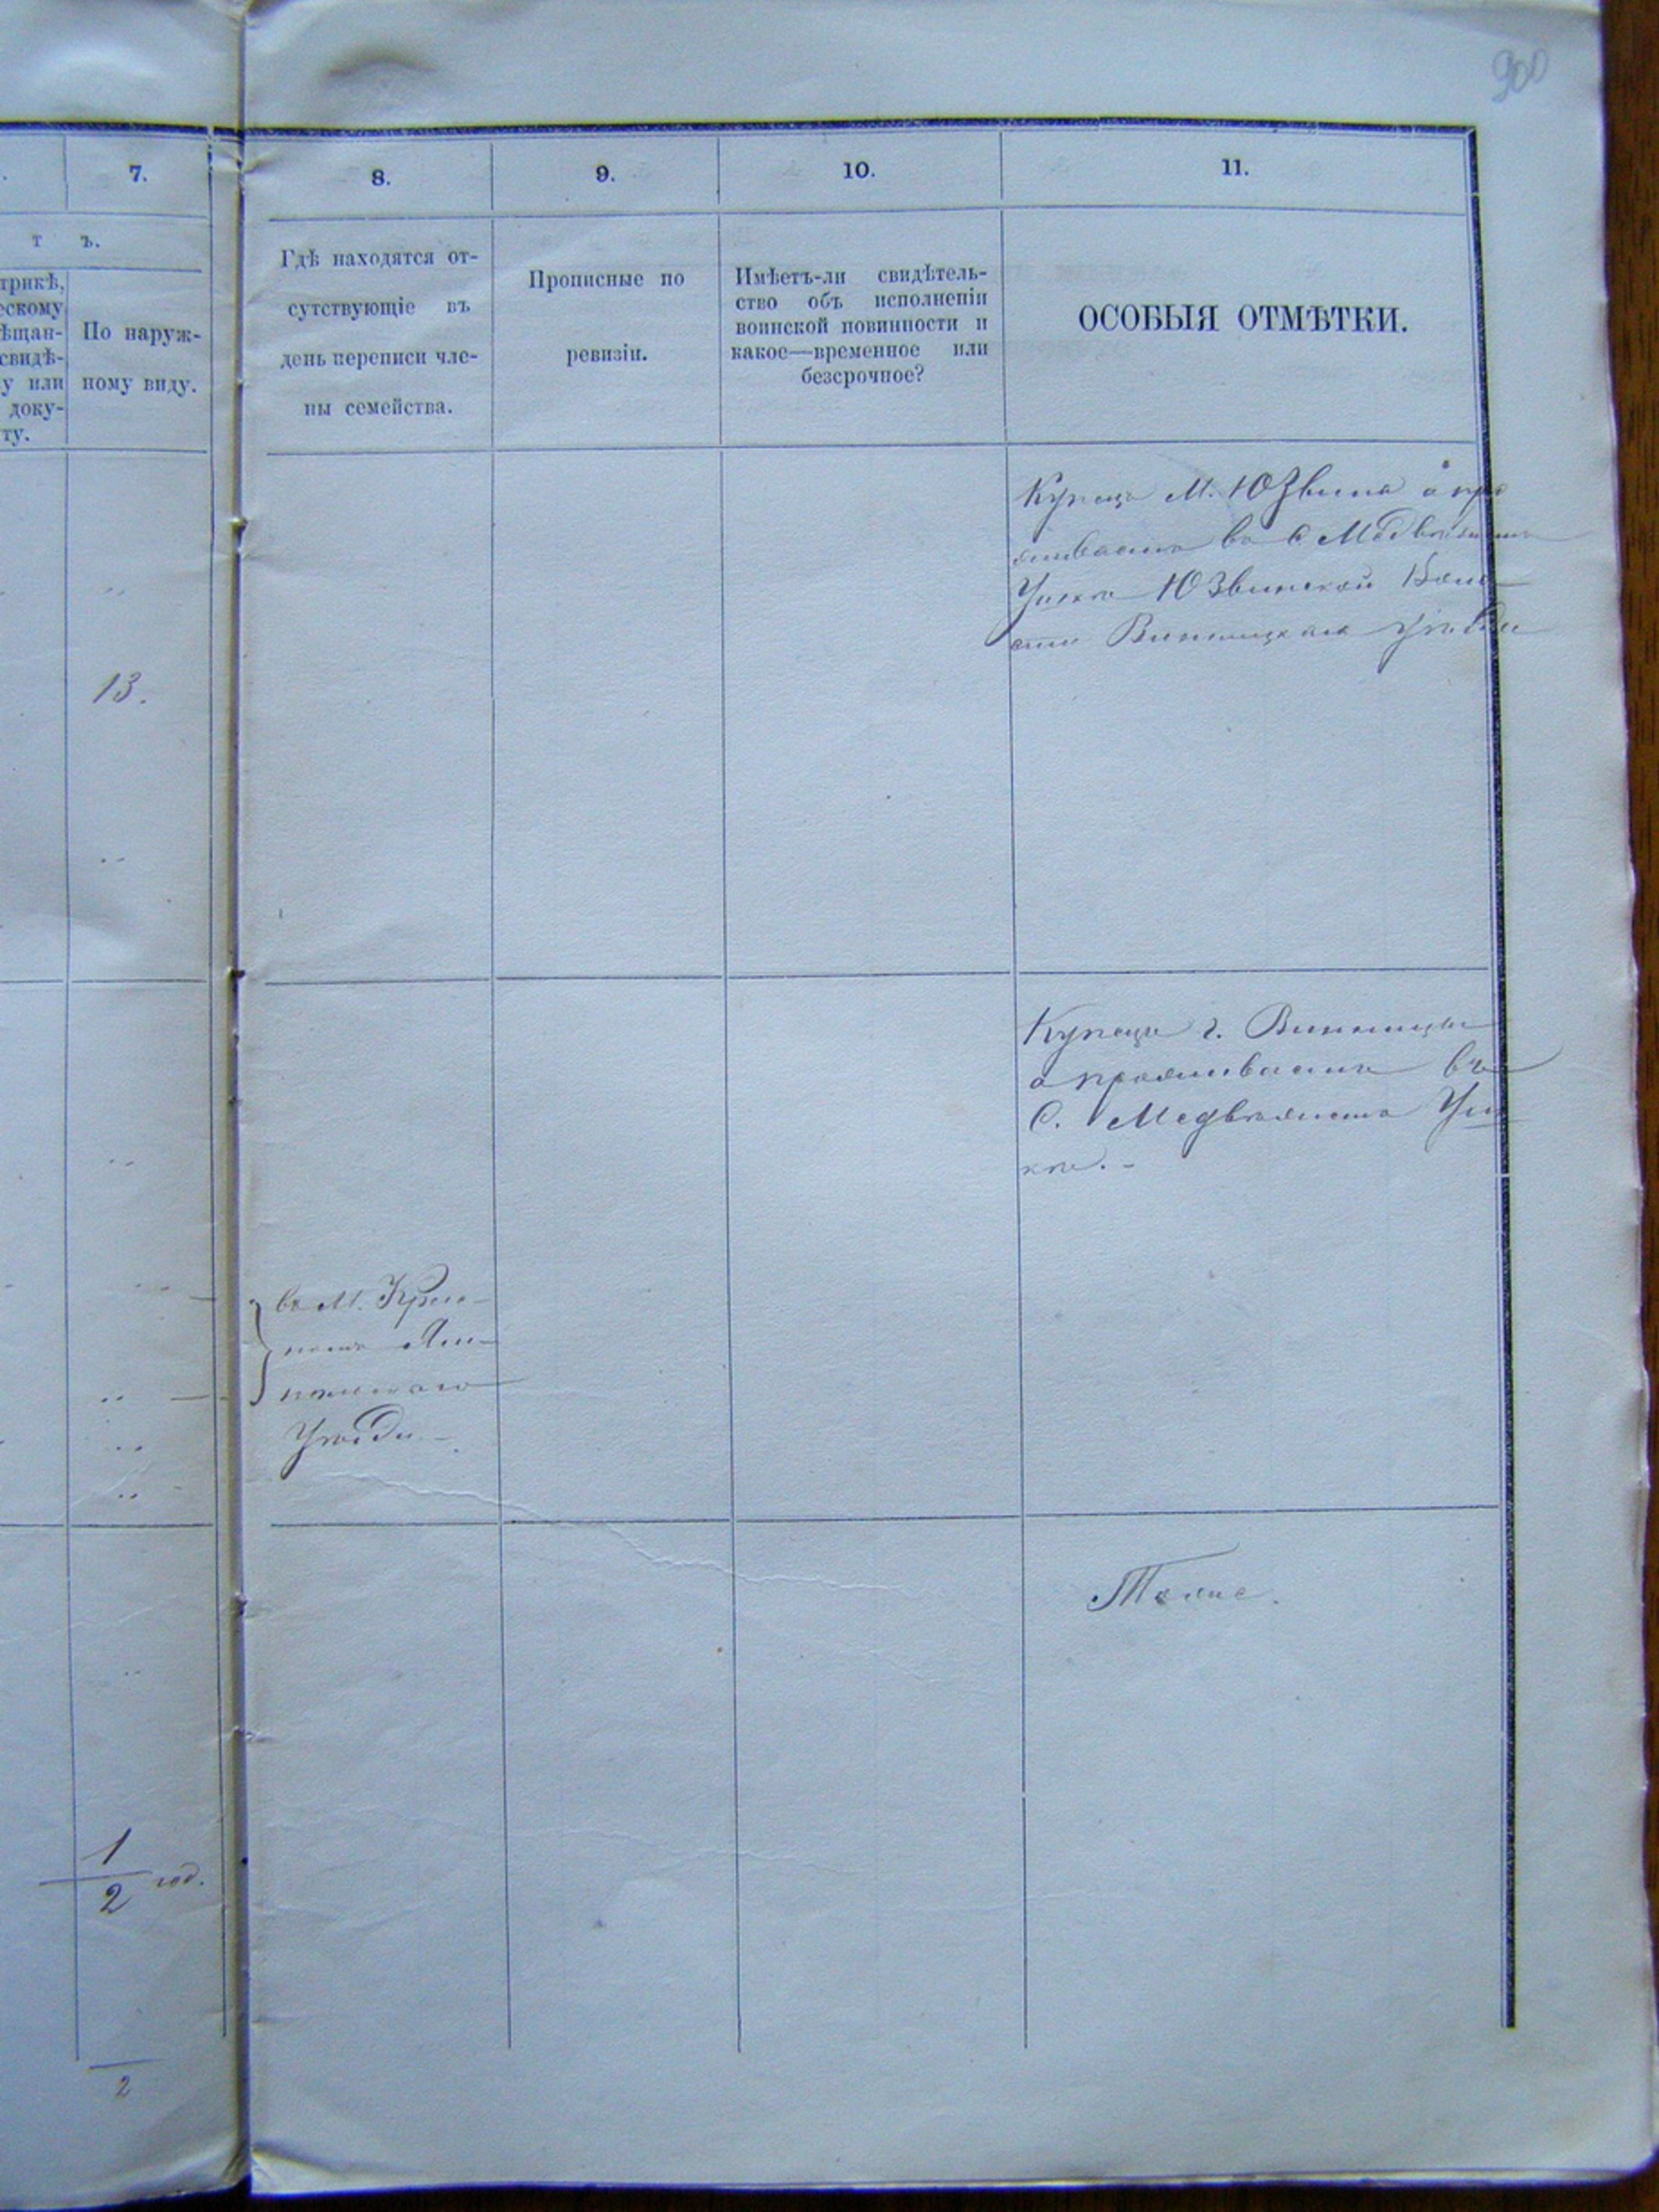 900
7.
8.
9.
10.
11.
т ъ.
трикѣ,
ескому
ѣщан-
свидѣ-
у или
доку-
ту.
По наруж-
ному виду.
Гдѣ находятся от-
сутствующіе въ
день переписи чле-
ны семейства.
Прописные по
ревизіи.
Имѣетъ-ли свидѣтель-
ство объ исполненіи
воинской повинности и
какое—временное или
безсрочное?
ОСОБЫЯ ОТМѢТКИ.
Купецъ М. Юзвина а про
живаетъ въ С Медвѣжьемъ
Ушкѣ Юзвинской Воло
сти Винницкаго уѣзда
13.
Купецъ г. Винницы
а проживаетъ въ
С. Медвѣжьемъ Уш
кѣ. -
въ М.
Ям-
польскаго
Уѣзда. -
Тоже.
1
2 год.
2